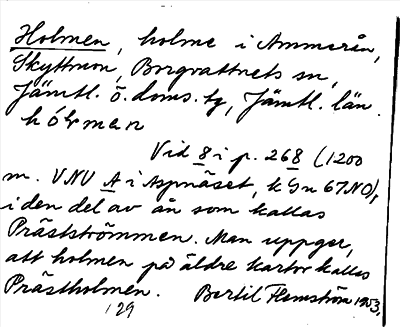 Holmen, holme i Ammerån,
Skyttmon, Borgvattnets sn,
Jämtl. ö. doms. tg, Jämtl. län.
hólmen
Vid 8 i p. 268 (1200
m. VNV A i Aspnäset, k Gn 67NO),
i den del av ån som kallas
Präströmmen. Man uppger,
att holmen på äldre kartor kallas
Prästholmen. Bertil Flemström 1953.
129